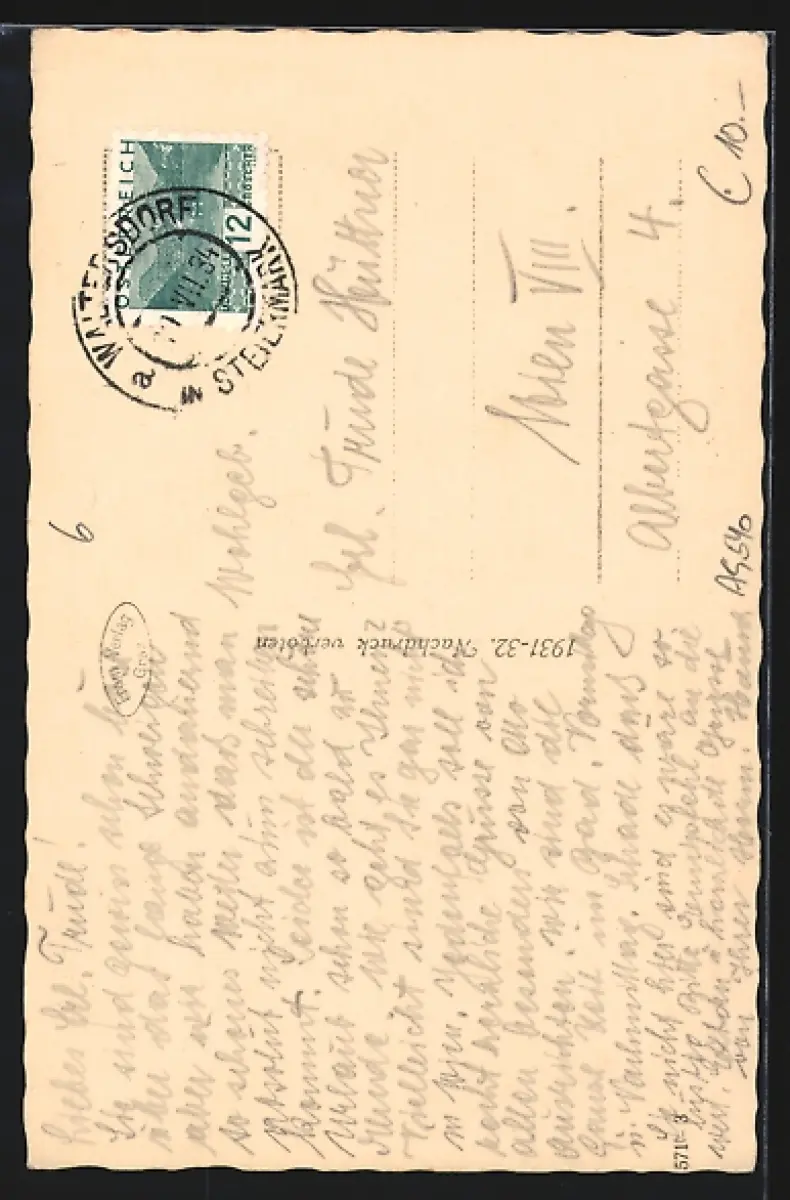 Liebes Frl. Trude!
Sie sind gewiss schon bö
über das lange Schweigen
aber wir haben andauernd
so schönes Wetter daß man
absolut nicht zum schreiben
kommt. Leider ist der schöne
Urlaub schon so bald zu
Ende. Wie geht es Ihnen?
Vielleicht sind Sie gar nicht
in Wien. Jedenfalls soll ich
recht herzliche Grüsse von
allen besonders von Otto
ausrichten. Wir sind die
ganze Zeit im Bad. Vormittag
u. Nachmittag. Schade daß
Sie nicht hier sind es wäre so
lustig. Bitte Handkuss an die
wert. Eltern u. herzlichste Grüsse
von Ihrer Hanna
6
ÖSTERREICH
12
WALTERSDORF
IN STEIERMARK
a
VII 34
Wohlgeb.
Frl. Trude Hüttner
Wien VIII.
Albertgasse 4.
Verlag
Graz
1931-32. Nachdruck verboten
571-3
AG540
10.-